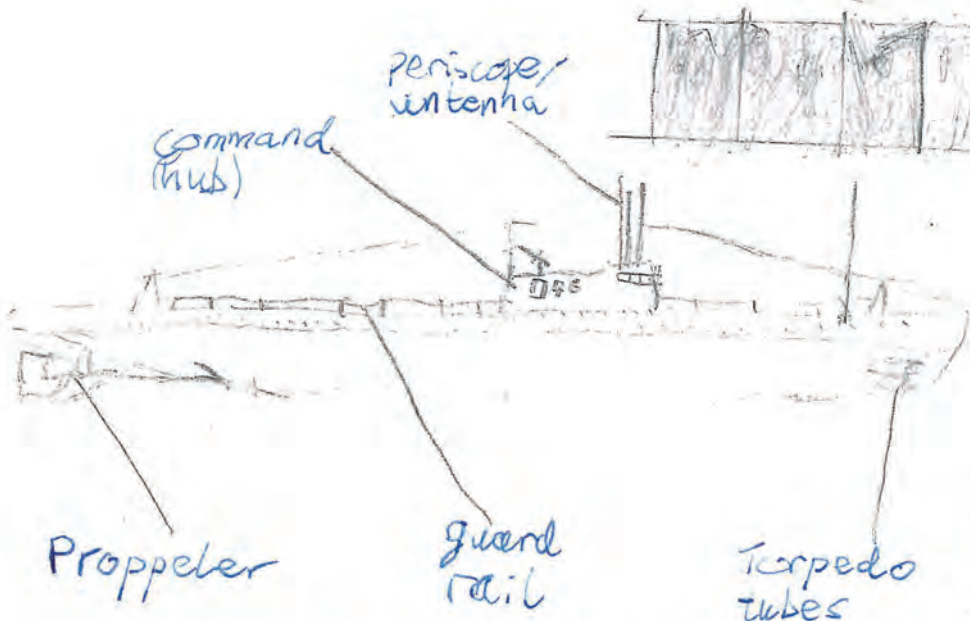 periscope/
antenna
command
(hub)
Proppeler
guard
rail
Torpedo
tubes